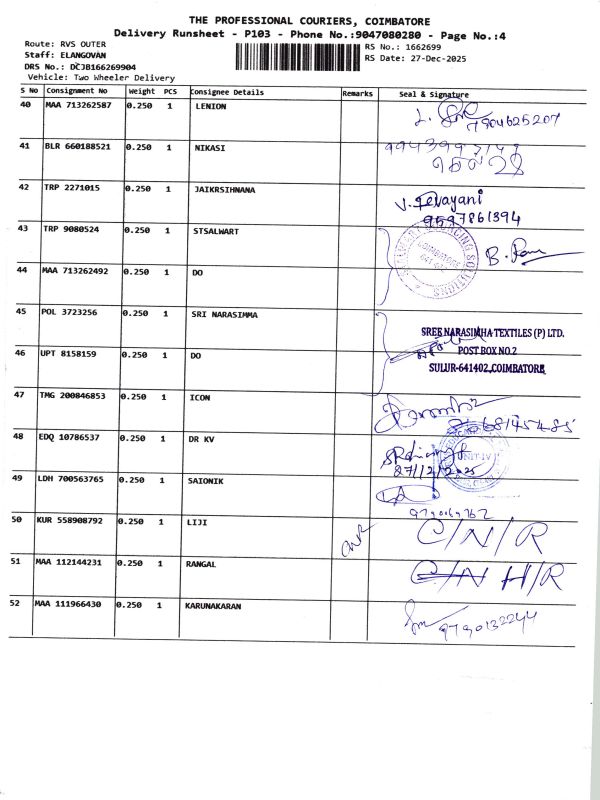 THE PROFESSIONAL COURIERS, COIMBATORE
Delivery Runsheet - P103 - Phone No.:9047080280 - Page No.:4
Route: RVS OUTER
Staff: ELANGOVAN
DRS No.: DCJB166269904
Vehicle: Two Wheeler Delivery
RS No.: 1662699
RS Date: 27-Dec-2025
S No Consignment No Weight PCS Consignee Details Remarks Seal & Signature
40 MAA 713262587 0.250 1 LENION
7904625207
41 BLR 660188521 0.250 1 NIKASI
42 TRP 2271015 0.250 1 JAIKRSIHNANA V. Devayani
9597861394
43 TRP 9080524 0.250 1 STSALWART
COIMBATORE
44 MAA 713262492 0.250 1 DO
45 POL 3723256 0.250 1 SRI NARASIMMA
SREE NARASIMHA TEXTILES (P) LTD.
POST BOX NO.2
SULUR-641402, COIMBATORE
46 UPT 8158159 0.250 1 DO
47 TMG 200846853 0.250 1 ICON
48 EDQ 10786537 0.250 1 DR KV
27/12/2025
49 LDH 700563765 0.250 1 SAIONIK
50 KUR 558908792 0.250 1 LIJI C/N/R
51 MAA 112144231 0.250 1 RANGAL C/N H/R
52 MAA 111966430 0.250 1 KARUNAKARAN
9790132244